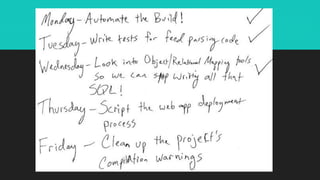 Monday - Automate the Build!
Tuesday - Write tests for feed parsing code
Wednesday - Look into Object/Relational Mapping tools
so we can stop writing all that
SQL!
Thursday - Script the web app deployment
process
Friday - Clean up the project's
compilation warnings